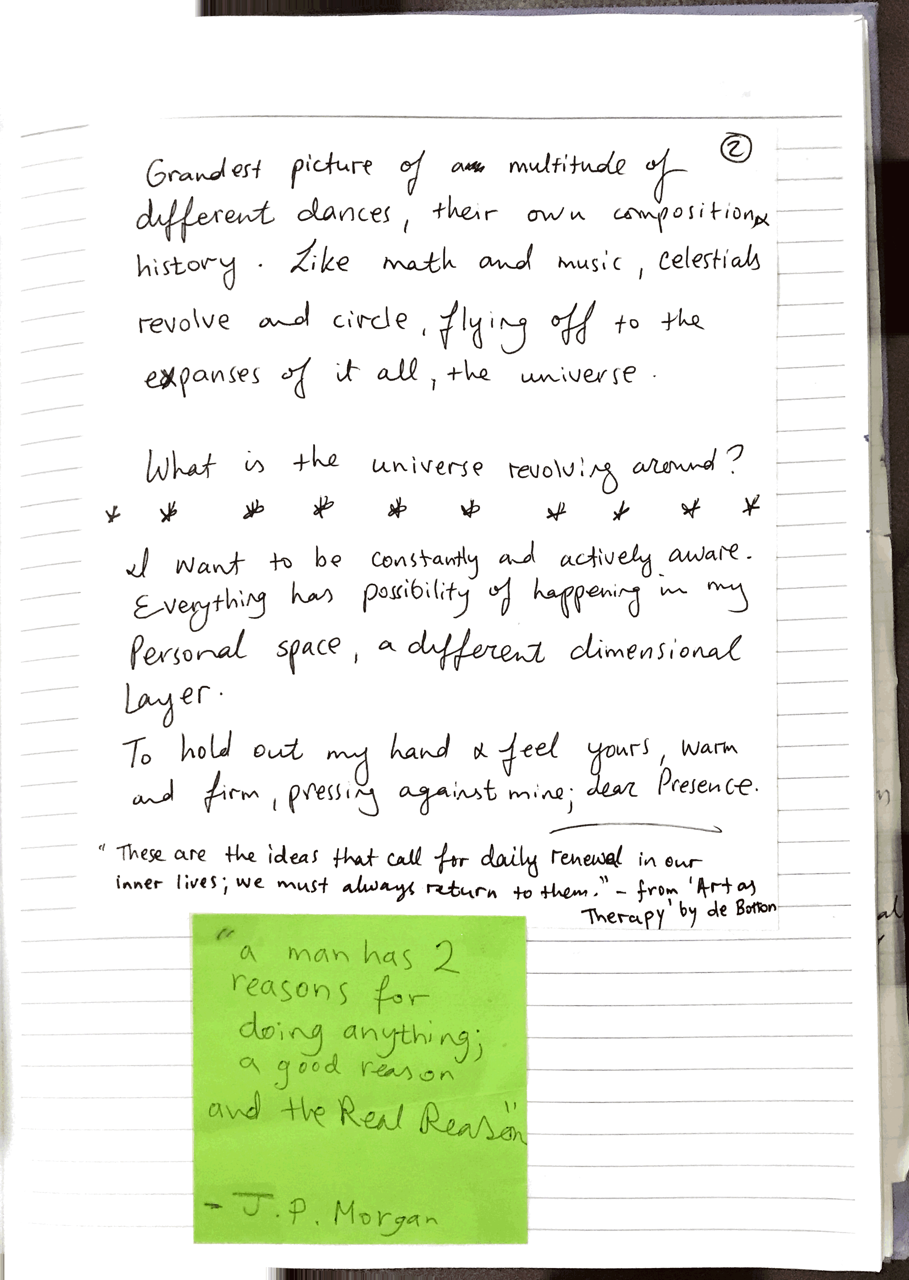 ②
Grandest picture of a multitude of
different dances, their own composition &
history. Like math and music, celestials
revolve and circle, flying off to the
expanses of it all, the universe.
What is the universe revolving around?
* * * * * * * * * *
I want to be constantly and actively aware.
Everything has possibility of happening in my
Personal space, a different dimensional
Layer.
To hold out my hand & feel yours, warm
and firm, pressing against mine; dear Presence.
"These are the ideas that call for daily renewal in our
inner lives; we must always return to them." - from 'Art as
Therapy' by de Botton
"a man has 2
reasons for
doing anything;
a good reason
and the Real Reason"
- J.P. Morgan